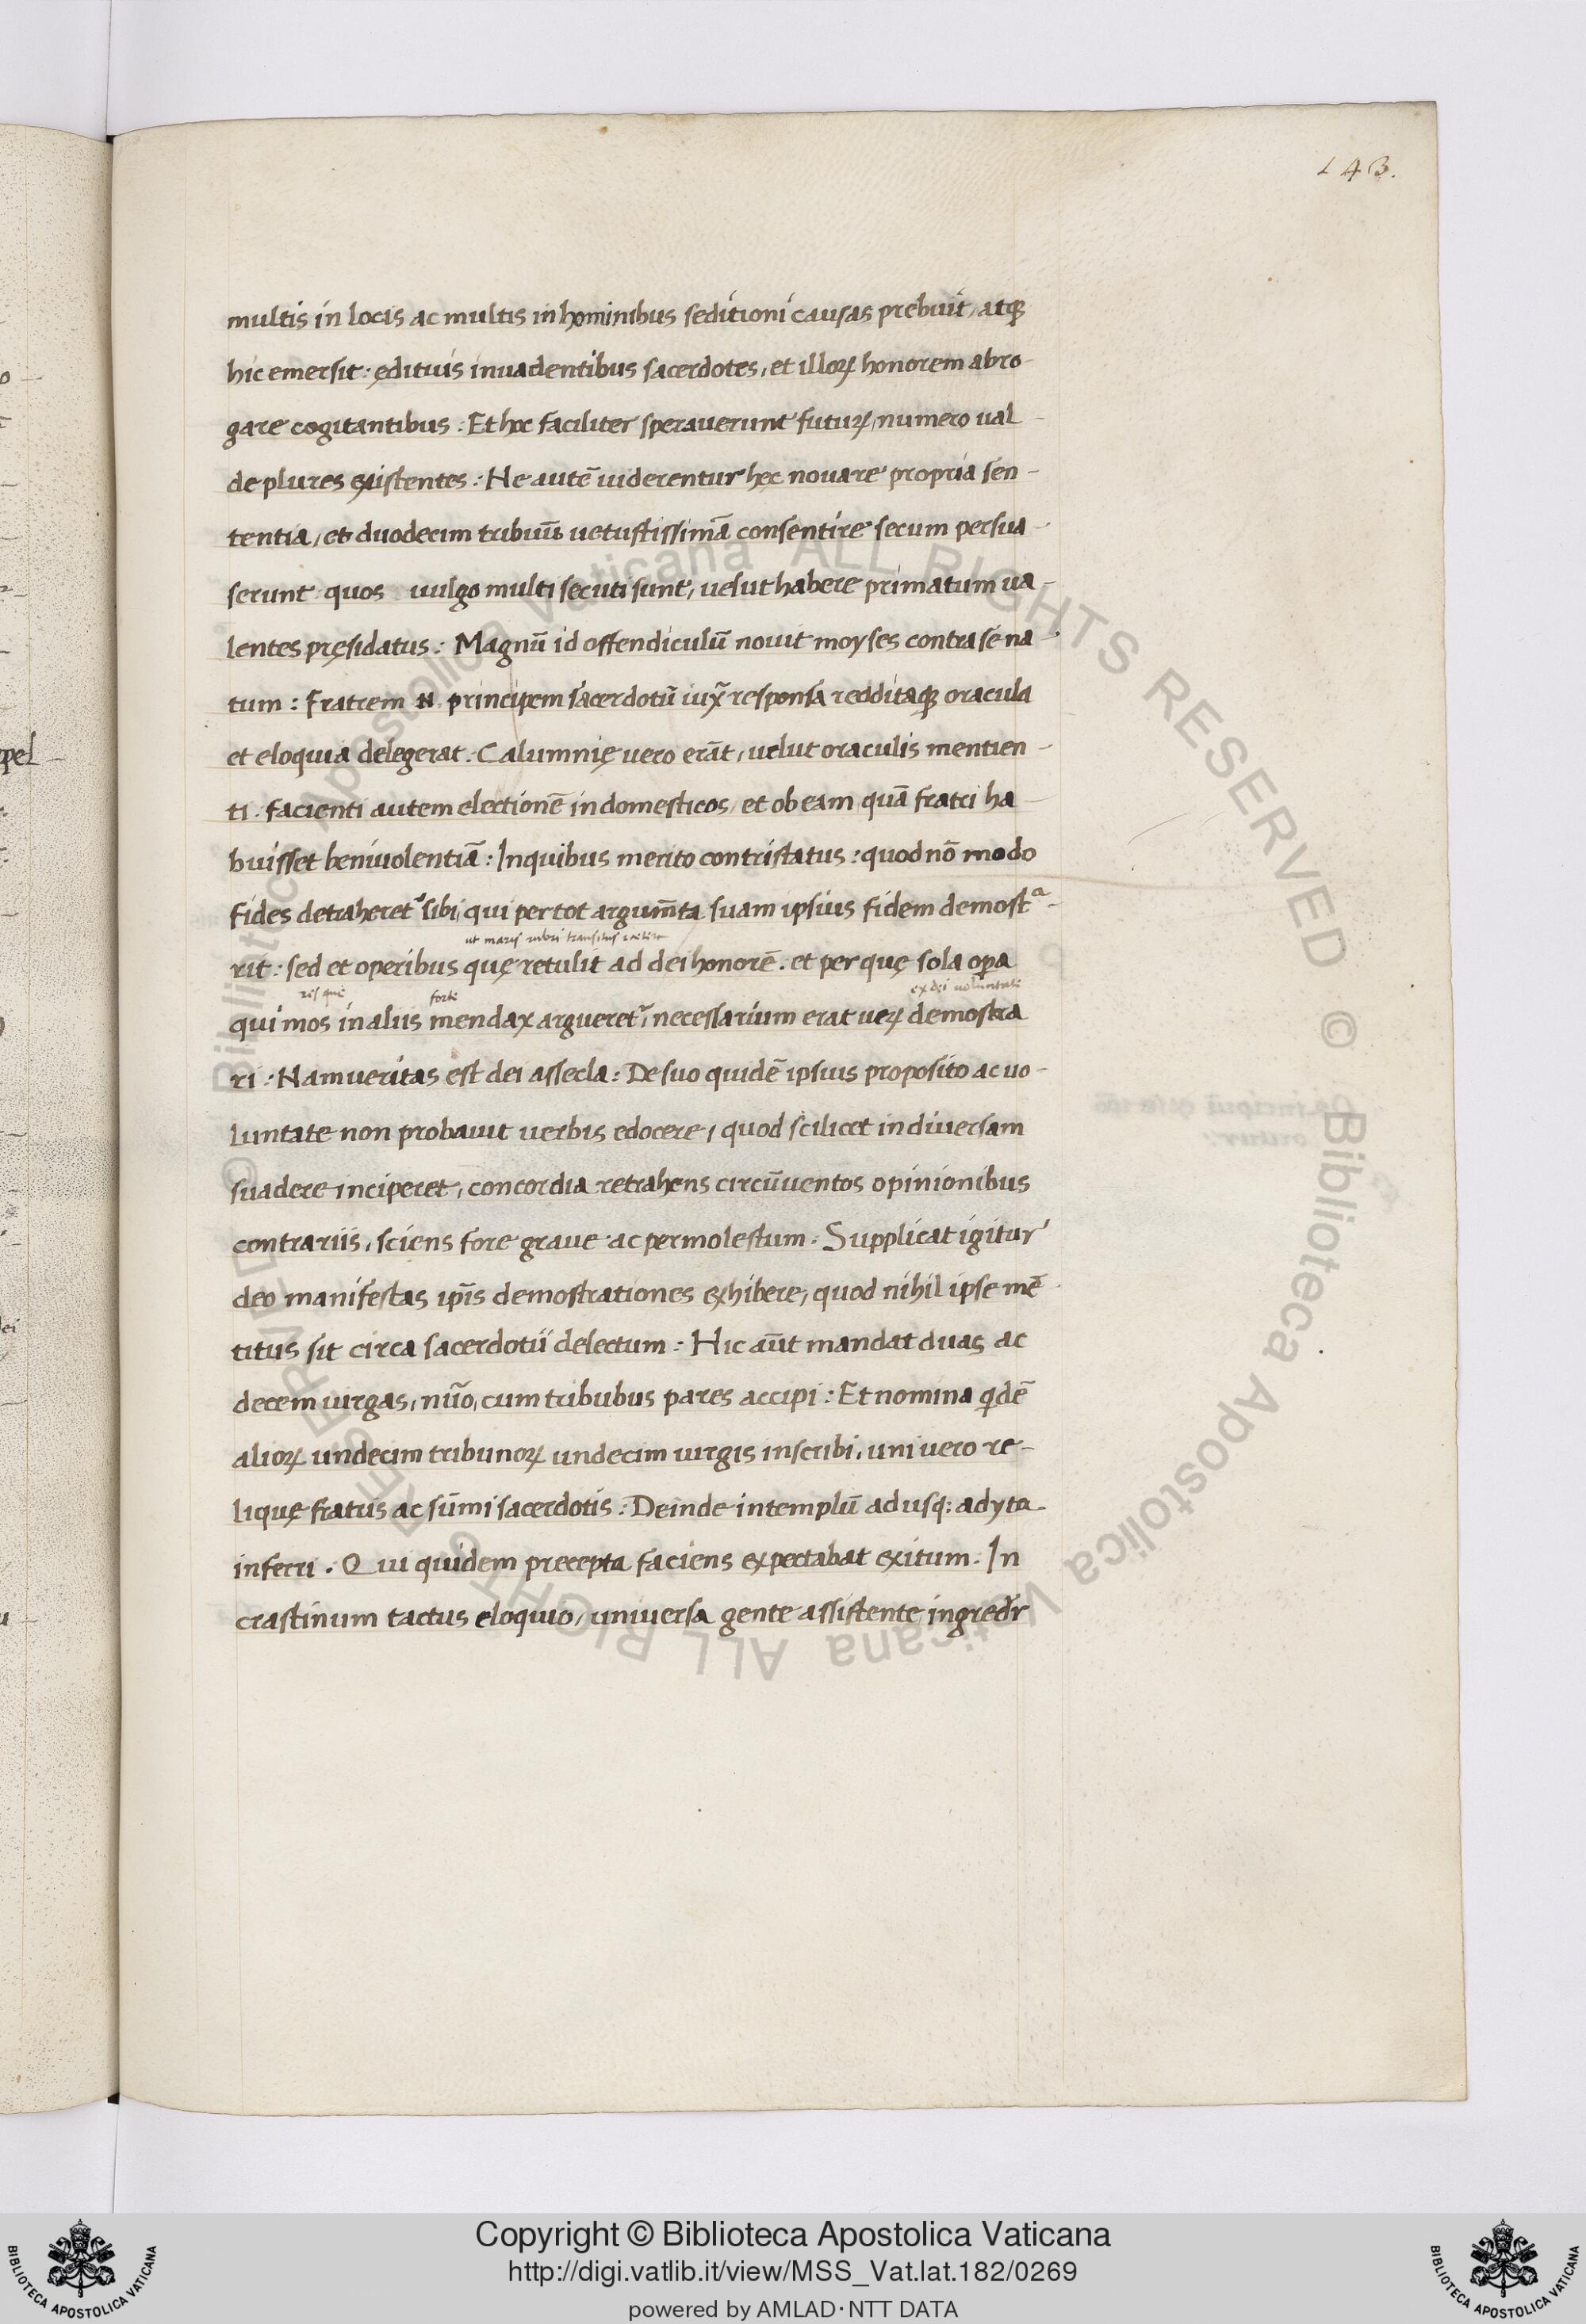 143.
multis in locis ac multis in hominibus seditioni causas prebuit, atqꝫ
hic emersit: ędituis inuadentibus sacerdotes, et illoꝝ honorem abro
gare cogitantibus: Et hoc faciliter sperauerunt futuꝝ, numero ual
de plures existentes: Ne autē uiderentur hęc nouare propria sen-
tentia, et duodecim tribuū uetustissimā consentire secum persua
serunt quos uulgo multi secuti sunt, uelut habere primatum ua-
lentes pręsidatus: Magnū id offendiculū nouit moyses contra sena
tum: fratrem N. principem sacerdotū iuxͣ responsa redditaqꝫ oracula
et eloquia delegerat. Calumnię uero erāt, uelut oraculis mentien
ti. facienti autem electionē in domesticos, et ob eam quā fratri ha
buisset beniuolentiā: In quibus merito contristatus: quod nō modo
fides detraheret᷑ sibi, qui per tot argum̄ta suam ipsius fidem demostͣ
ut maris rubri transitus
rit: sed et operibus quę retulit ad dei honorē. et per quę sola oꝑa
forte
ex dei uoluntate
qui mos in aliis mendax argueret᷑, necessarium erat ueꝝ demostra
ri: Nam ueritas est dei assecla: De suo quidē ipsius proposito ac uo-
luntate non probauit uerbis edocere, quod scilicet in diuersam
suadere inciperet, concordia retrahens circūuentos opinionibus
contrariis, sciens fore graue ac permolestum. Supplicat igitur
deo manifestas ip̄is demostrationes exhibere, quod nihil ipse mē
titus sit circa sacerdotii delectum: Hic aūt mandat duas ac
decem uirgas, nūo, cum tribubus pares accipi: Et nomina qͥdē
alioꝝ undecim tribunoꝝ undecim uirgis inscribi, uni uero re-
lique fratris ac sūmi sacerdotis: Deinde in templū ad usqꝫ adyta
inferri. Qui quidem precepta faciens expectabat exitum. In
crastinum tactus eloquio, uniuersa gente assistente ingredr̄
ppel
© Biblioteca Apostolica Vaticana ALL RIGHTS RESERVED © Biblioteca Apostolica Vaticana ALL RIGHTS RESERVED
Copyright © Biblioteca Apostolica Vaticana
http://digi.vatlib.it/view/MSS_Vat.lat.182/0269
powered by AMLAD · NTT DATA
BIBLIOTECA APOSTOLICA VATICANA
BIBLIOTECA APOSTOLICA VATICANA